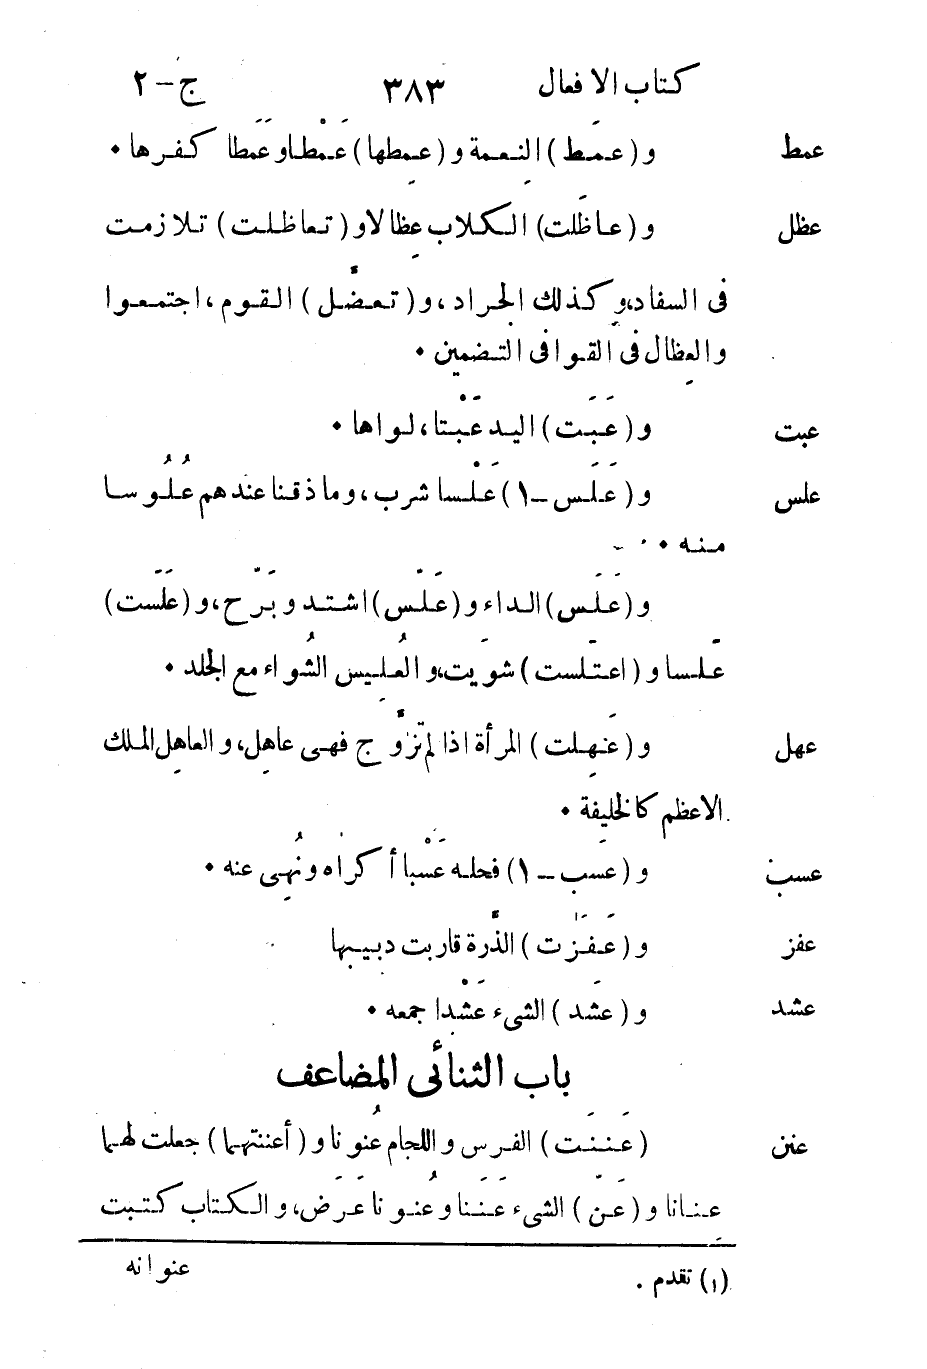 كتاب الافعال ٣٨٣ ج-٢
عمط و (عمَط) النِعمة و (عمِطها) عَمْطا وعَمَطا كفرها •
عظل و (عاظَلت) الكلاب عِظالا و (تعاظلت) تلازمت
فى السفاد، وكذلك الجراد، و (تعضّل) القوم، اجتمعوا
والعِظال فى القوافى التضمين •
عبت و (عَبَت) اليد عَبْتا، لواها •
علس و (عَلَس -١) عَلْسا شرب، وما ذقنا عندهم عُلُوسا
منه •
و (عَلَس) الداء و (عَلّس) اشتد وبَرّح، و (عَلَست)
عَلسا و (اعتَلست) شوَيت، والعُليس الشُواء مع الجِلد •
عهل و (عَهِلت) المرأة اذا لم تزَوّج فهى عاهِل، والعاهِل الملك
الاعظم كالخليفة •
عسب و (عسِب -١) فحله عَسْبا أكراه ونُهِى عنه •
عفز و (عَفَزت) الذّرة قاربت دبيبها
عشد و (عشَد) الشىء عَشْدا جمعه •
باب الثنائى المضاعف
عنن (عَنَنت) الفرس واللجام عنُونا و (أعننتهما) جعلت لهما
عِنانا و (عَنّ) الشىء عَنَنا وعُنونا عَرَض، والكتاب كتبت
عنوانه
(١) تقدم .